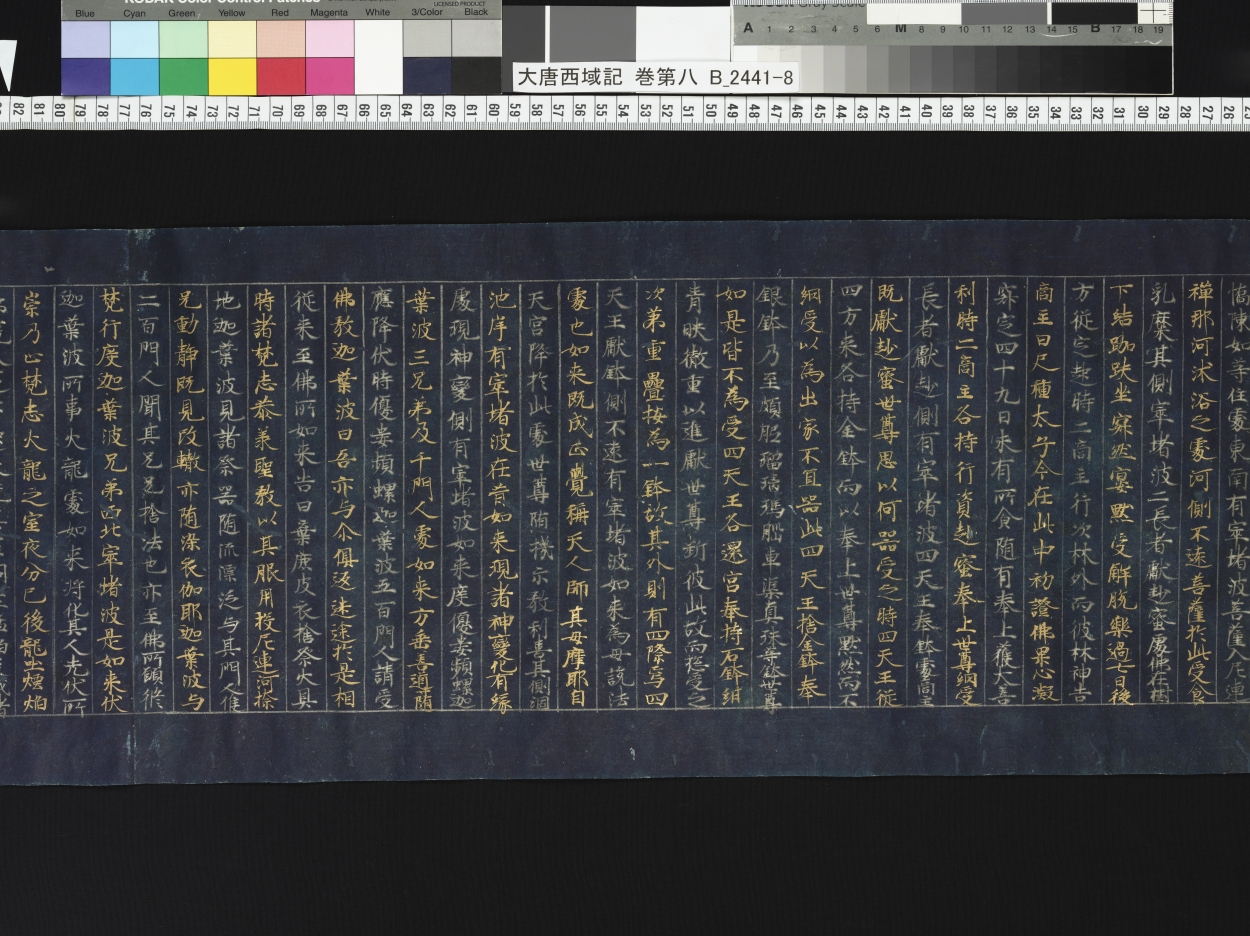 KODAK Color Control Patches
LICENSED PRODUCT
Blue Cyan Green Yellow Red Magenta White 3/Color Black
A 1 2 3 4 5 6 M 8 9 10 11 12 13 14 15 B 17 18 19
大唐西域記 巻第八 B_2441-8
82 81 80 79 78 77 76 75 74 73 72 71 70 69 68 67 66 65 64 63 62 61 60 59 58 57 56 55 54 53 52 51 50 49 48 47 46 45 44 43 42 41 40 39 38 37 36 35 34 33 32 31 30 29 28 27 26
憍陳如等住處東南有窣堵波菩薩入尼連
禪那河沐浴之處河側不遠菩薩於此受食
乳糜其側窣堵波二長者獻麨蜜處佛在樹
下結跏趺坐寂然宴默受解脫樂過七日後
方從定起時二商主行次林外而彼林神告
商主曰尺種太子今在此中初證佛果心凝
寂定四十九日未有所食隨有奉上獲大善
利時二商主各持行資麨蜜奉上世尊納受
長者獻麨側有窣堵波四天王奉鉢處商主
既獻麨蜜世尊思以何器受之時四天王從
四方來各持金鉢而以奉上世尊默然而不
納受以為出家不宜器此四天王捨金鉢奉
銀鉢乃至頗胝瑠璃瑪瑙車渠真珠等鉢世尊
如是皆不為受四天王各還宮奉持石鉢紺
青映徹重以進獻世尊斷彼此故而揔受之
次第重疊按為一鉢故其外則有四際焉四
天王獻鉢側不遠有窣堵波如來為母說法
處也如來既成正覺稱天人師其母摩耶自
天宮降於此處世尊隨機示教利喜其側涸
池岸有窣堵波在昔如來現諸神變化有緣
處現神變側有窣堵波如來度優婁頻螺迦
葉波三兄弟及千門人處如來方垂善道隨
應降伏時優婁頻螺迦葉波五百門人請受
佛教迦葉波曰吾亦与尒俱返迷途於是相
從來至佛所如來告曰棄鹿皮衣捨祭火具
時諸梵志恭承聖教以其服用投尼連河捺
地迦葉波見諸祭器隨流漂泛与其門人候
兄動靜既見改轍亦隨染衣伽耶迦葉波与
二百門人聞其兄之捨法也亦至佛所願修
梵行度迦葉波兄弟西北窣堵波是如來伏
迦葉波所事火龍處如來將化其人先伏所
崇乃止梵志火龍之室夜分已後龍吐煙焰